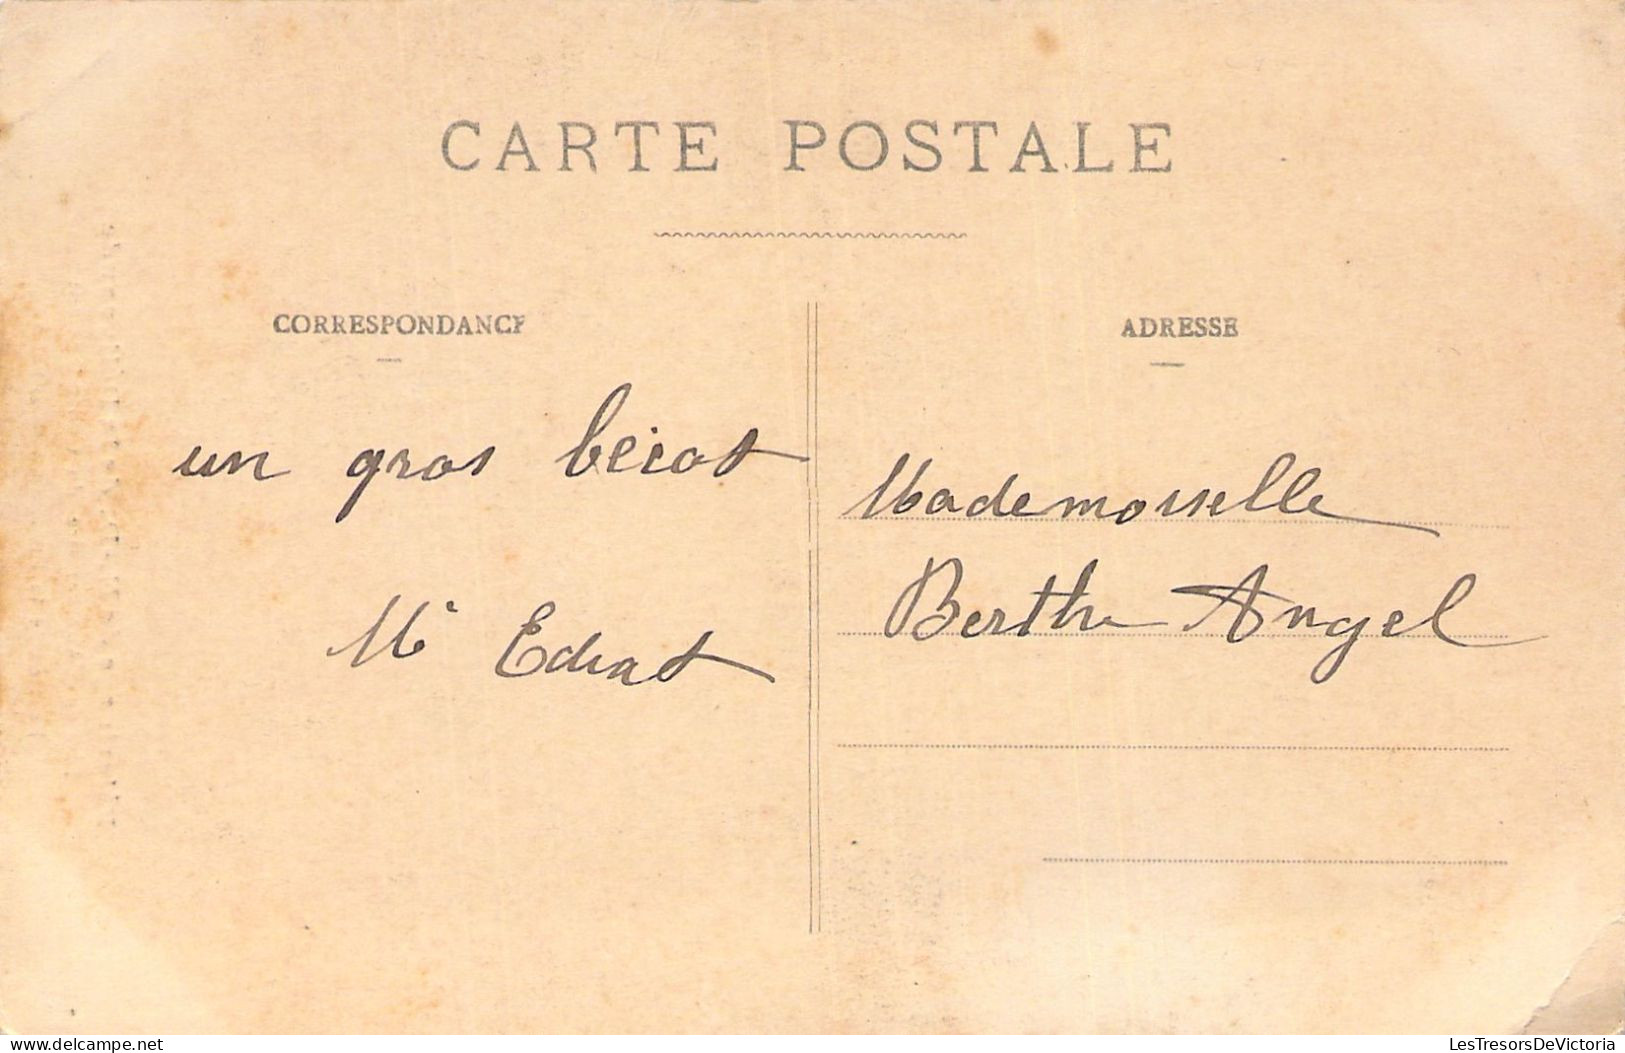 CARTE POSTALE
CORRESPONDANCE
ADRESSE
un gros bécot
Mademoiselle
Berthe Angel
LesTresorsDeVictoria